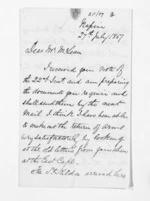 Napier
27th July 1867
Dear Mr. McLean
I received your note of
the 22nd Inst. and am preparing
the documents you require and
shall send them by the next
Mail. I think I have been able
to make out the return of Arms
very satisfactorily by looking
at the old letters from
at the East Cape.
The St. Kilda arrived here